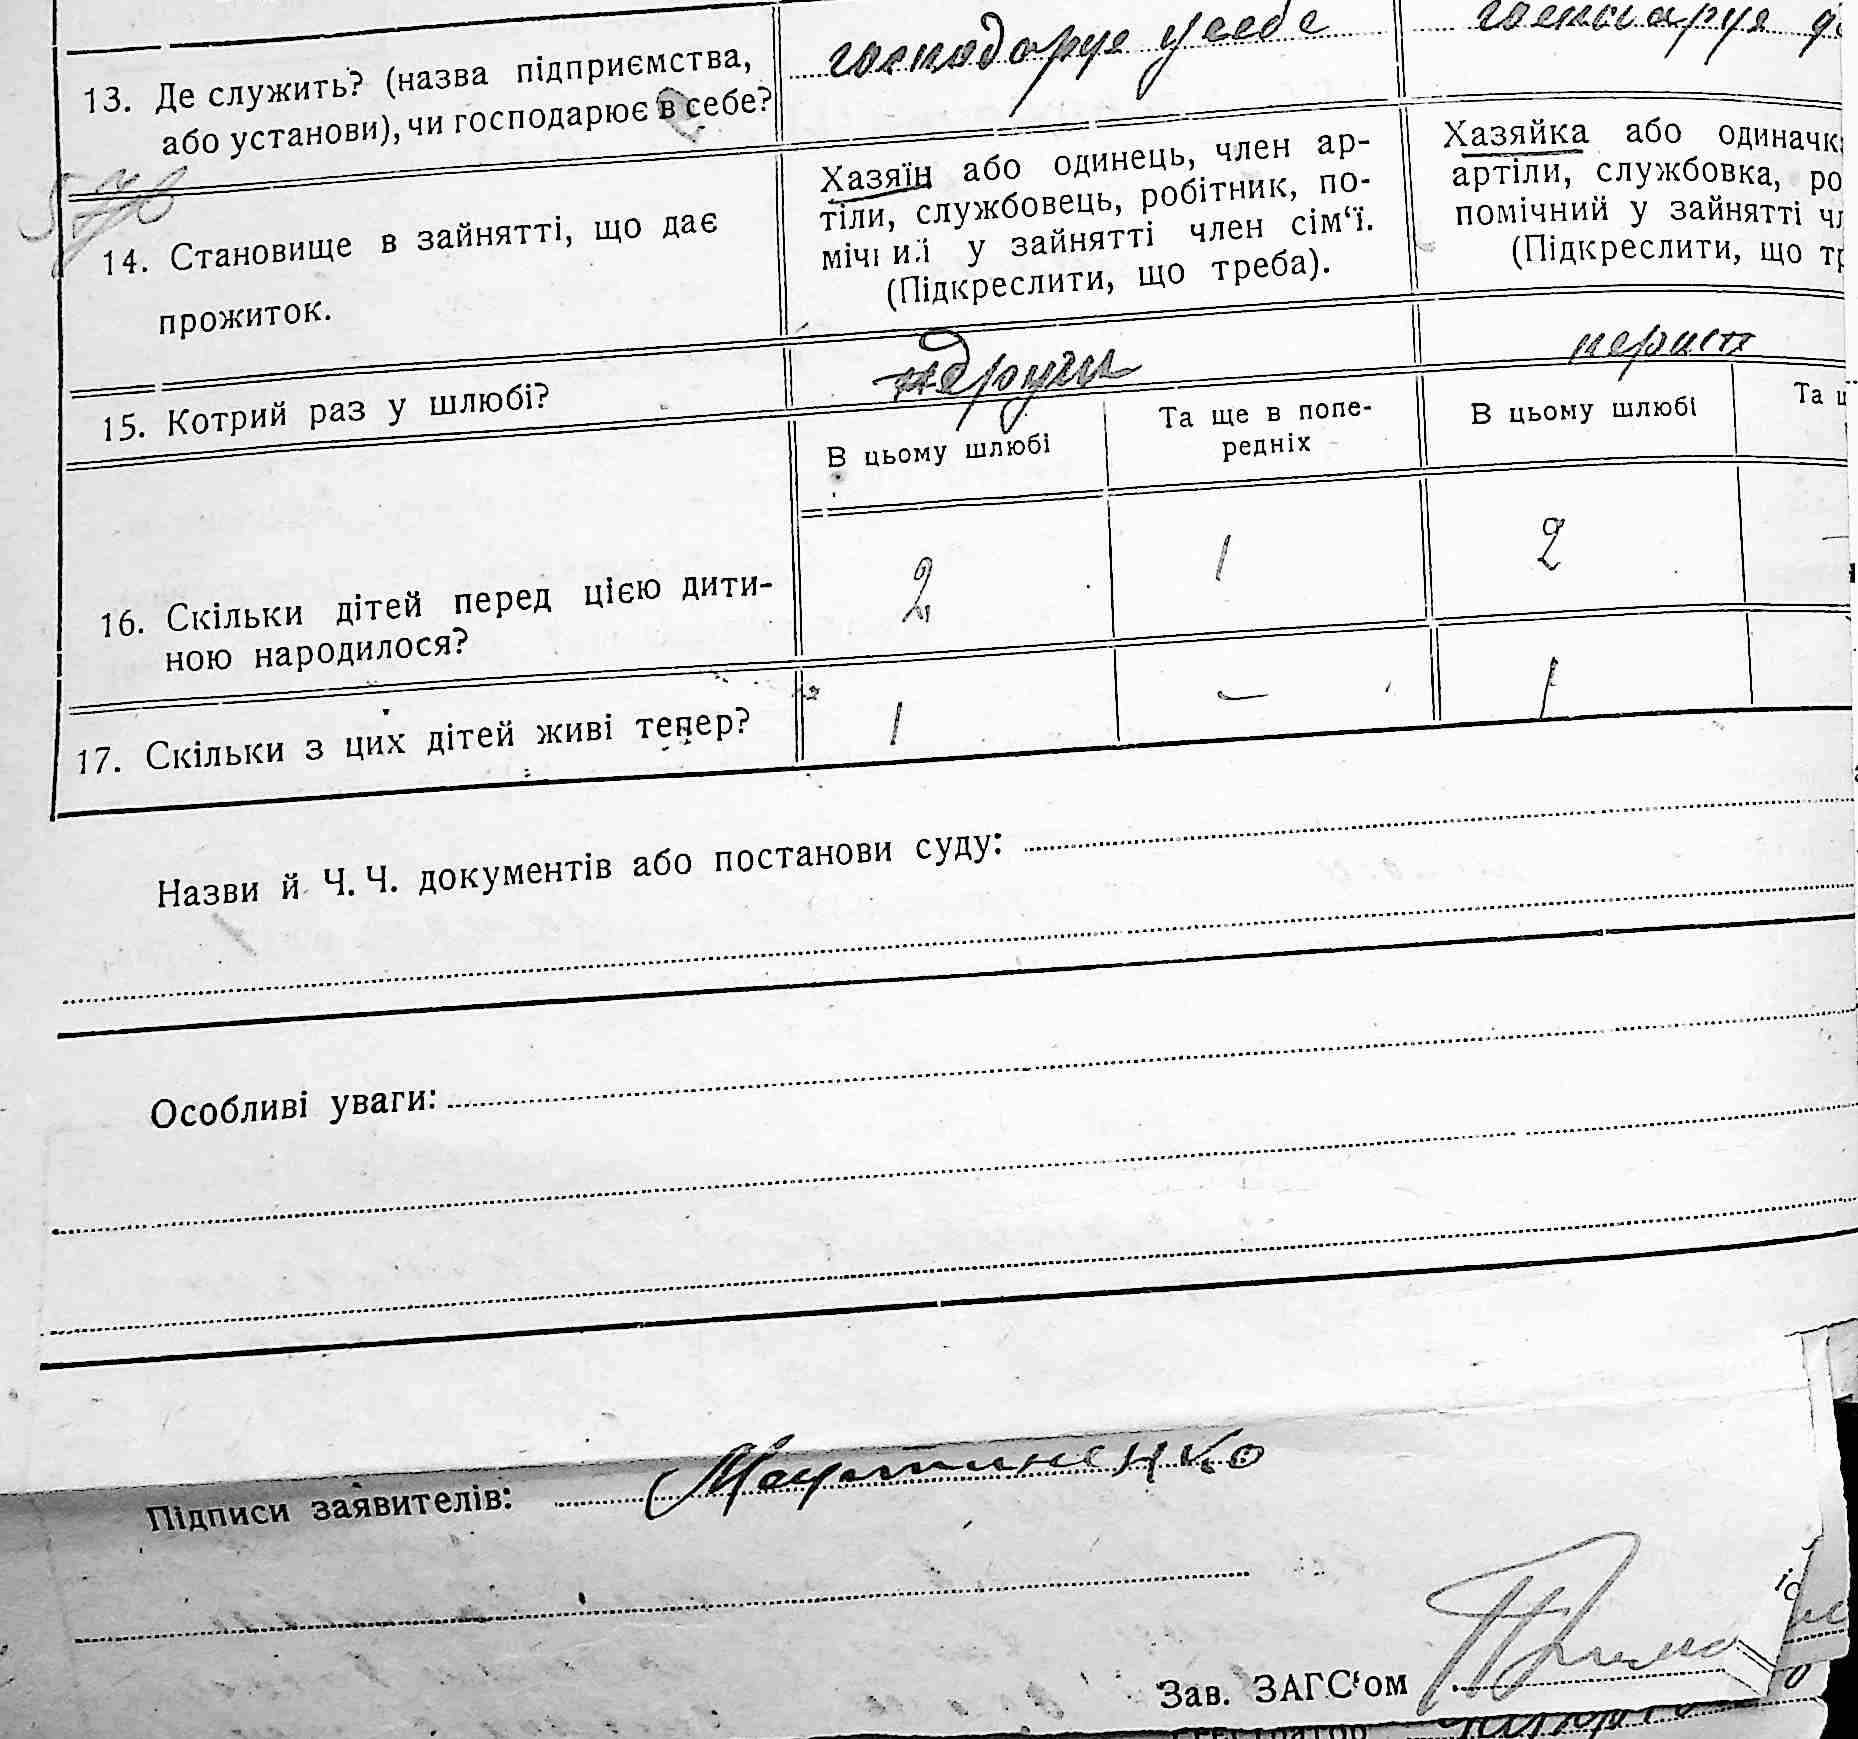 13. Де служить? (назва підприємства,
або установи), чи господарює в себе?
господарує у себе
14. Становище в зайнятті, що дає
прожиток.
Хазяїн або одинець, член ар-
тіли, службовець, робітник, по-
мічний у зайнятті член сім‘ї.
(Підкреслити, що треба).
Хазяйка або одиначк
артіли, службовка, ро
помічний у зайнятті чл
(Підкреслити, що тр
15. Котрий раз у шлюбі?
други
перши
В цьому шлюбі
Та ще в попе-
редніх
В цьому шлюбі
Та щ
16. Скільки дітей перед цією дити-
ною народилося?
2 1 2 –
17. Скільки з цих дітей живі тепер?
1 – 1
Назви й Ч. Ч. документів або постанови суду:
Особливі уваги:
Підписи заявителів: Мартиненко
Зав. ЗАГС‘ом